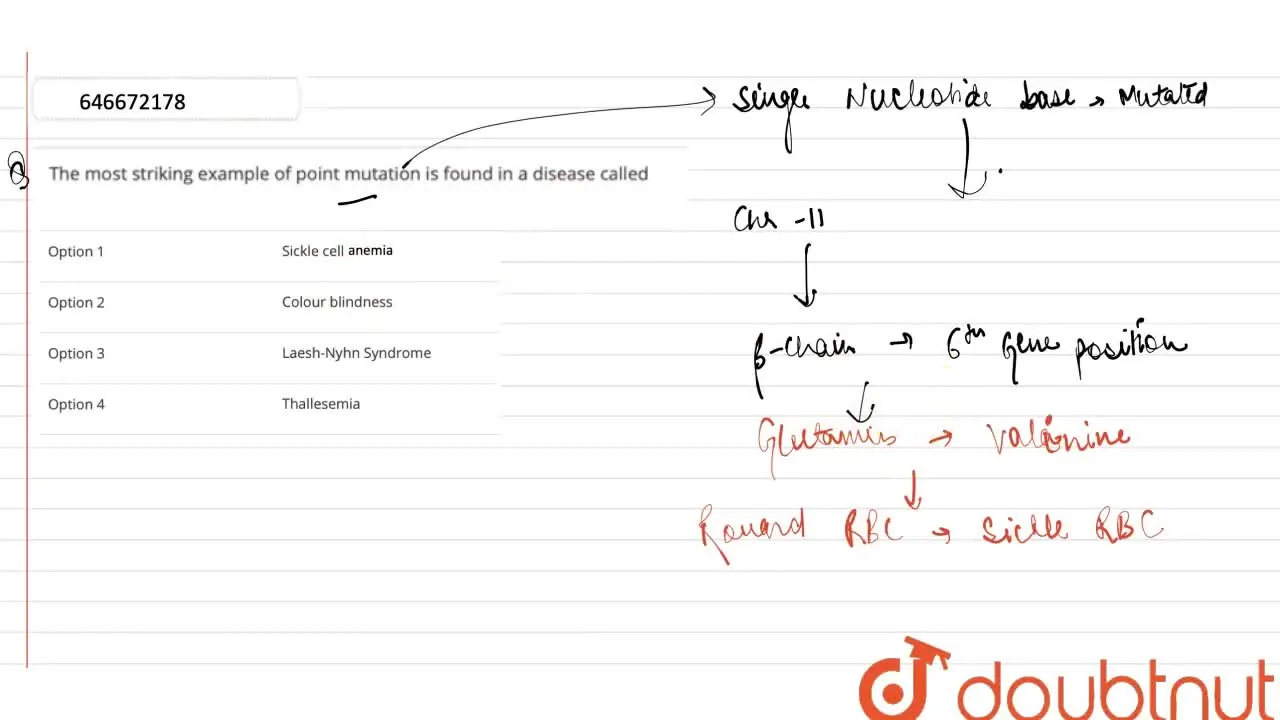 646672178
Single Nucleotide base → Mutated
Q The most striking example of point mutation is found in a disease called
Chr -11
Option 1 Sickle cell anemia
Option 2 Colour blindness
β-chain → 6th Gene position
Option 3 Laesh-Nyhn Syndrome
Option 4 Thallesemia
Glutamis → Valenine
Round RBC → Sickle RBC
doubtnut